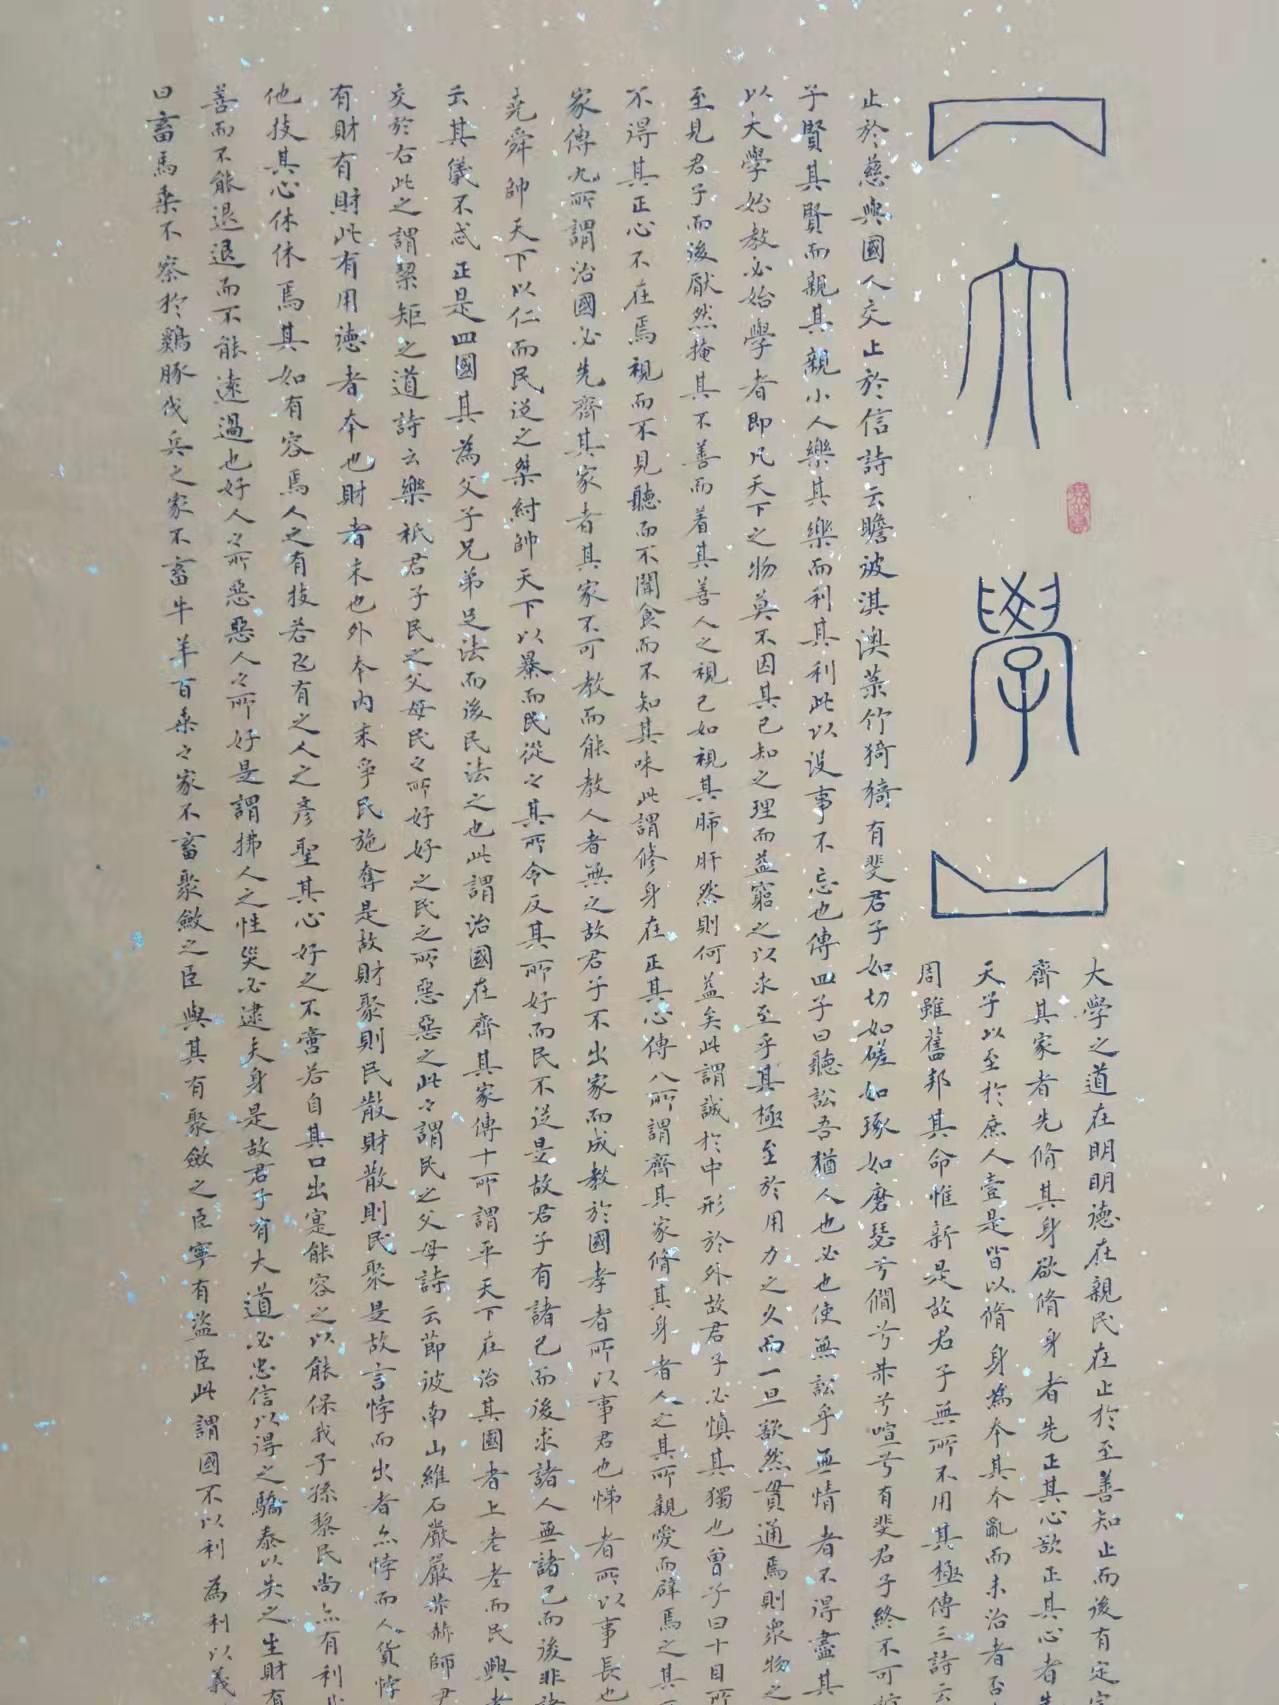 大學
大學之道在明明德在親民在止於至善知止而後有定
齊其家者先脩其身欲脩身者先正其心欲正其心者先
天子以至於庶人壹是皆以脩身為本其本亂而末治者否
周雖舊邦其命惟新是故君子無所不用其極傳三詩云
止於慈與國人交止於信詩云瞻彼淇澳菉竹猗猗有斐君子如切如磋如琢如磨瑟兮僩兮赫兮喧兮有斐君子終不可
子賢其賢而親其親小人樂其樂而利其利此以沒事不忘也傳四子曰聽訟吾猶人也必也使無訟乎無情者不得盡其
以大學始教必始學者即凡天下之物莫不因其已知之理而益窮之以求至乎其極至於用力之久而一旦豁然貫通焉則眾物之
至見君子而後厭然掩其不善而着其善人之視己如視其肺肝然則何益矣此謂誠於中形於外故君子必慎其獨也曾子曰十目所
不得其正心不在焉視而不見聽而不聞食而不知其味此謂修身在正其心傳八所謂齊其家脩其身者人之其所親愛而辟焉之其
家傳九所謂治國必先齊其家者其家不可教而能教人者無之故君子不出家而成教於國孝者所以事君也悌者所以事長也
堯舜帥天下以仁而民從之桀紂帥天下以暴而民從々其所令反其所好而民不從是故君子有諸己而後求諸人無諸己而後非
云其儀不忒正是四國其為父子兄弟足法而後民法之也此謂治國在齊其家傳十所謂平天下在治其國者上老老而民興
交於右此之謂絜矩之道詩云樂祇君子民之父母民々所好好之民之所惡惡之此々謂民之父母詩云節彼南山維石巖巖赫赫師尹
有財有財此有用德者本也財者末也外本內末爭民施奪是故財聚則民散財散則民聚是故言悖而出者亦悖而人貨悖
他技其心休休焉其如有容焉人之有技若己有之人之彥聖其心好之不啻若自其口出寔能容之以能保我子孫黎民尚亦有利
善而不能退退而不能遠過也好人々所惡惡人々所好是謂拂人之性災必逮夫身是故君子有大道必忠信以得之驕泰以失之生財有
曰畜馬乘不察於鷄豚伐兵之家不畜牛羊百乘々家不畜聚斂之臣與其有聚斂之臣寧有盜臣此謂國不以利為利以義